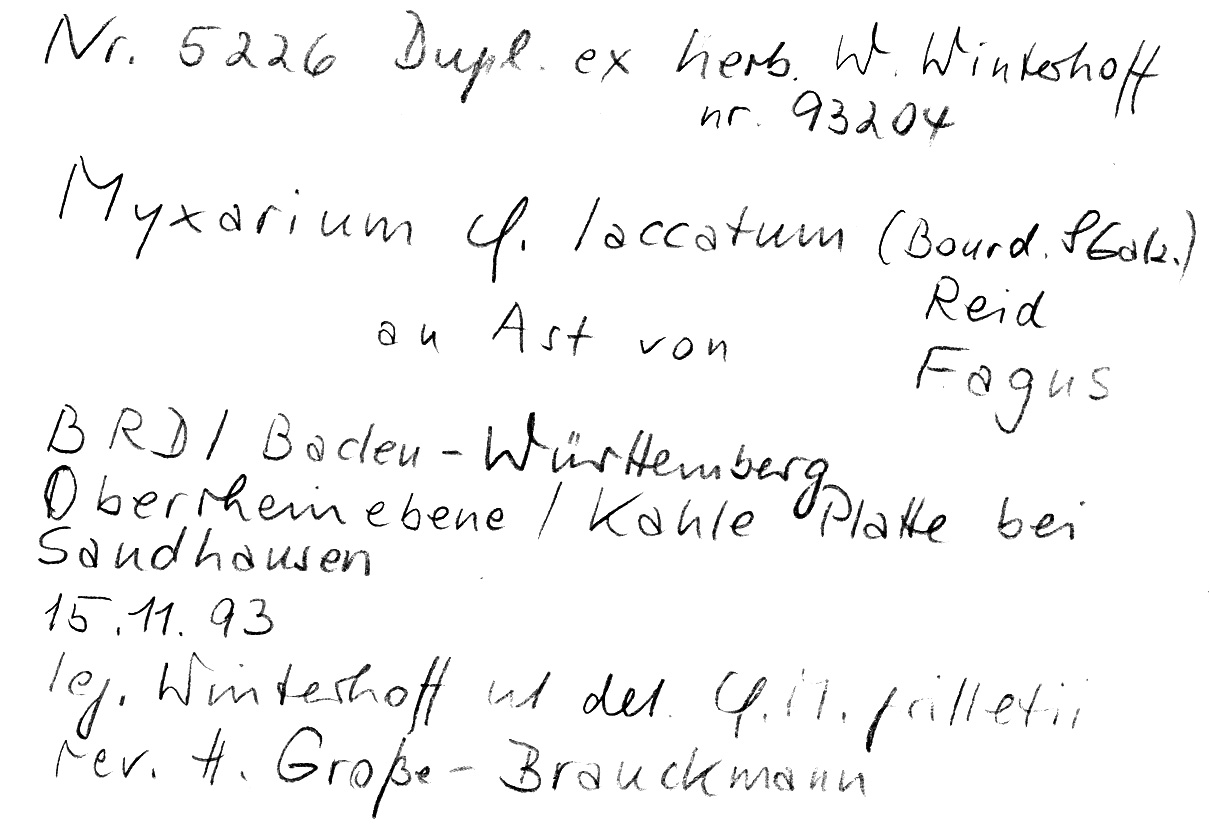 Nr. 5226 Dupl. ex herb. W. Winterhoff
nr. 93204
Myxarium cf. laccatum (Bourd. & Galz.)
Reid
an Ast von Fagus
BRD / Baden-Württemberg
Oberrheinebene / Kahle Platte bei
Sandhausen
15.11.93
leg. Winterhoff ut det. cf. M. grilletii
rev. H. Große-Brauckmann